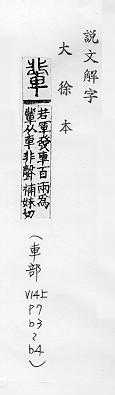 說文解字
大徐本
輩
若軍發車百兩為
一輩从車非聲補妹切
(車部
V14上
P7
b3
~
b4)